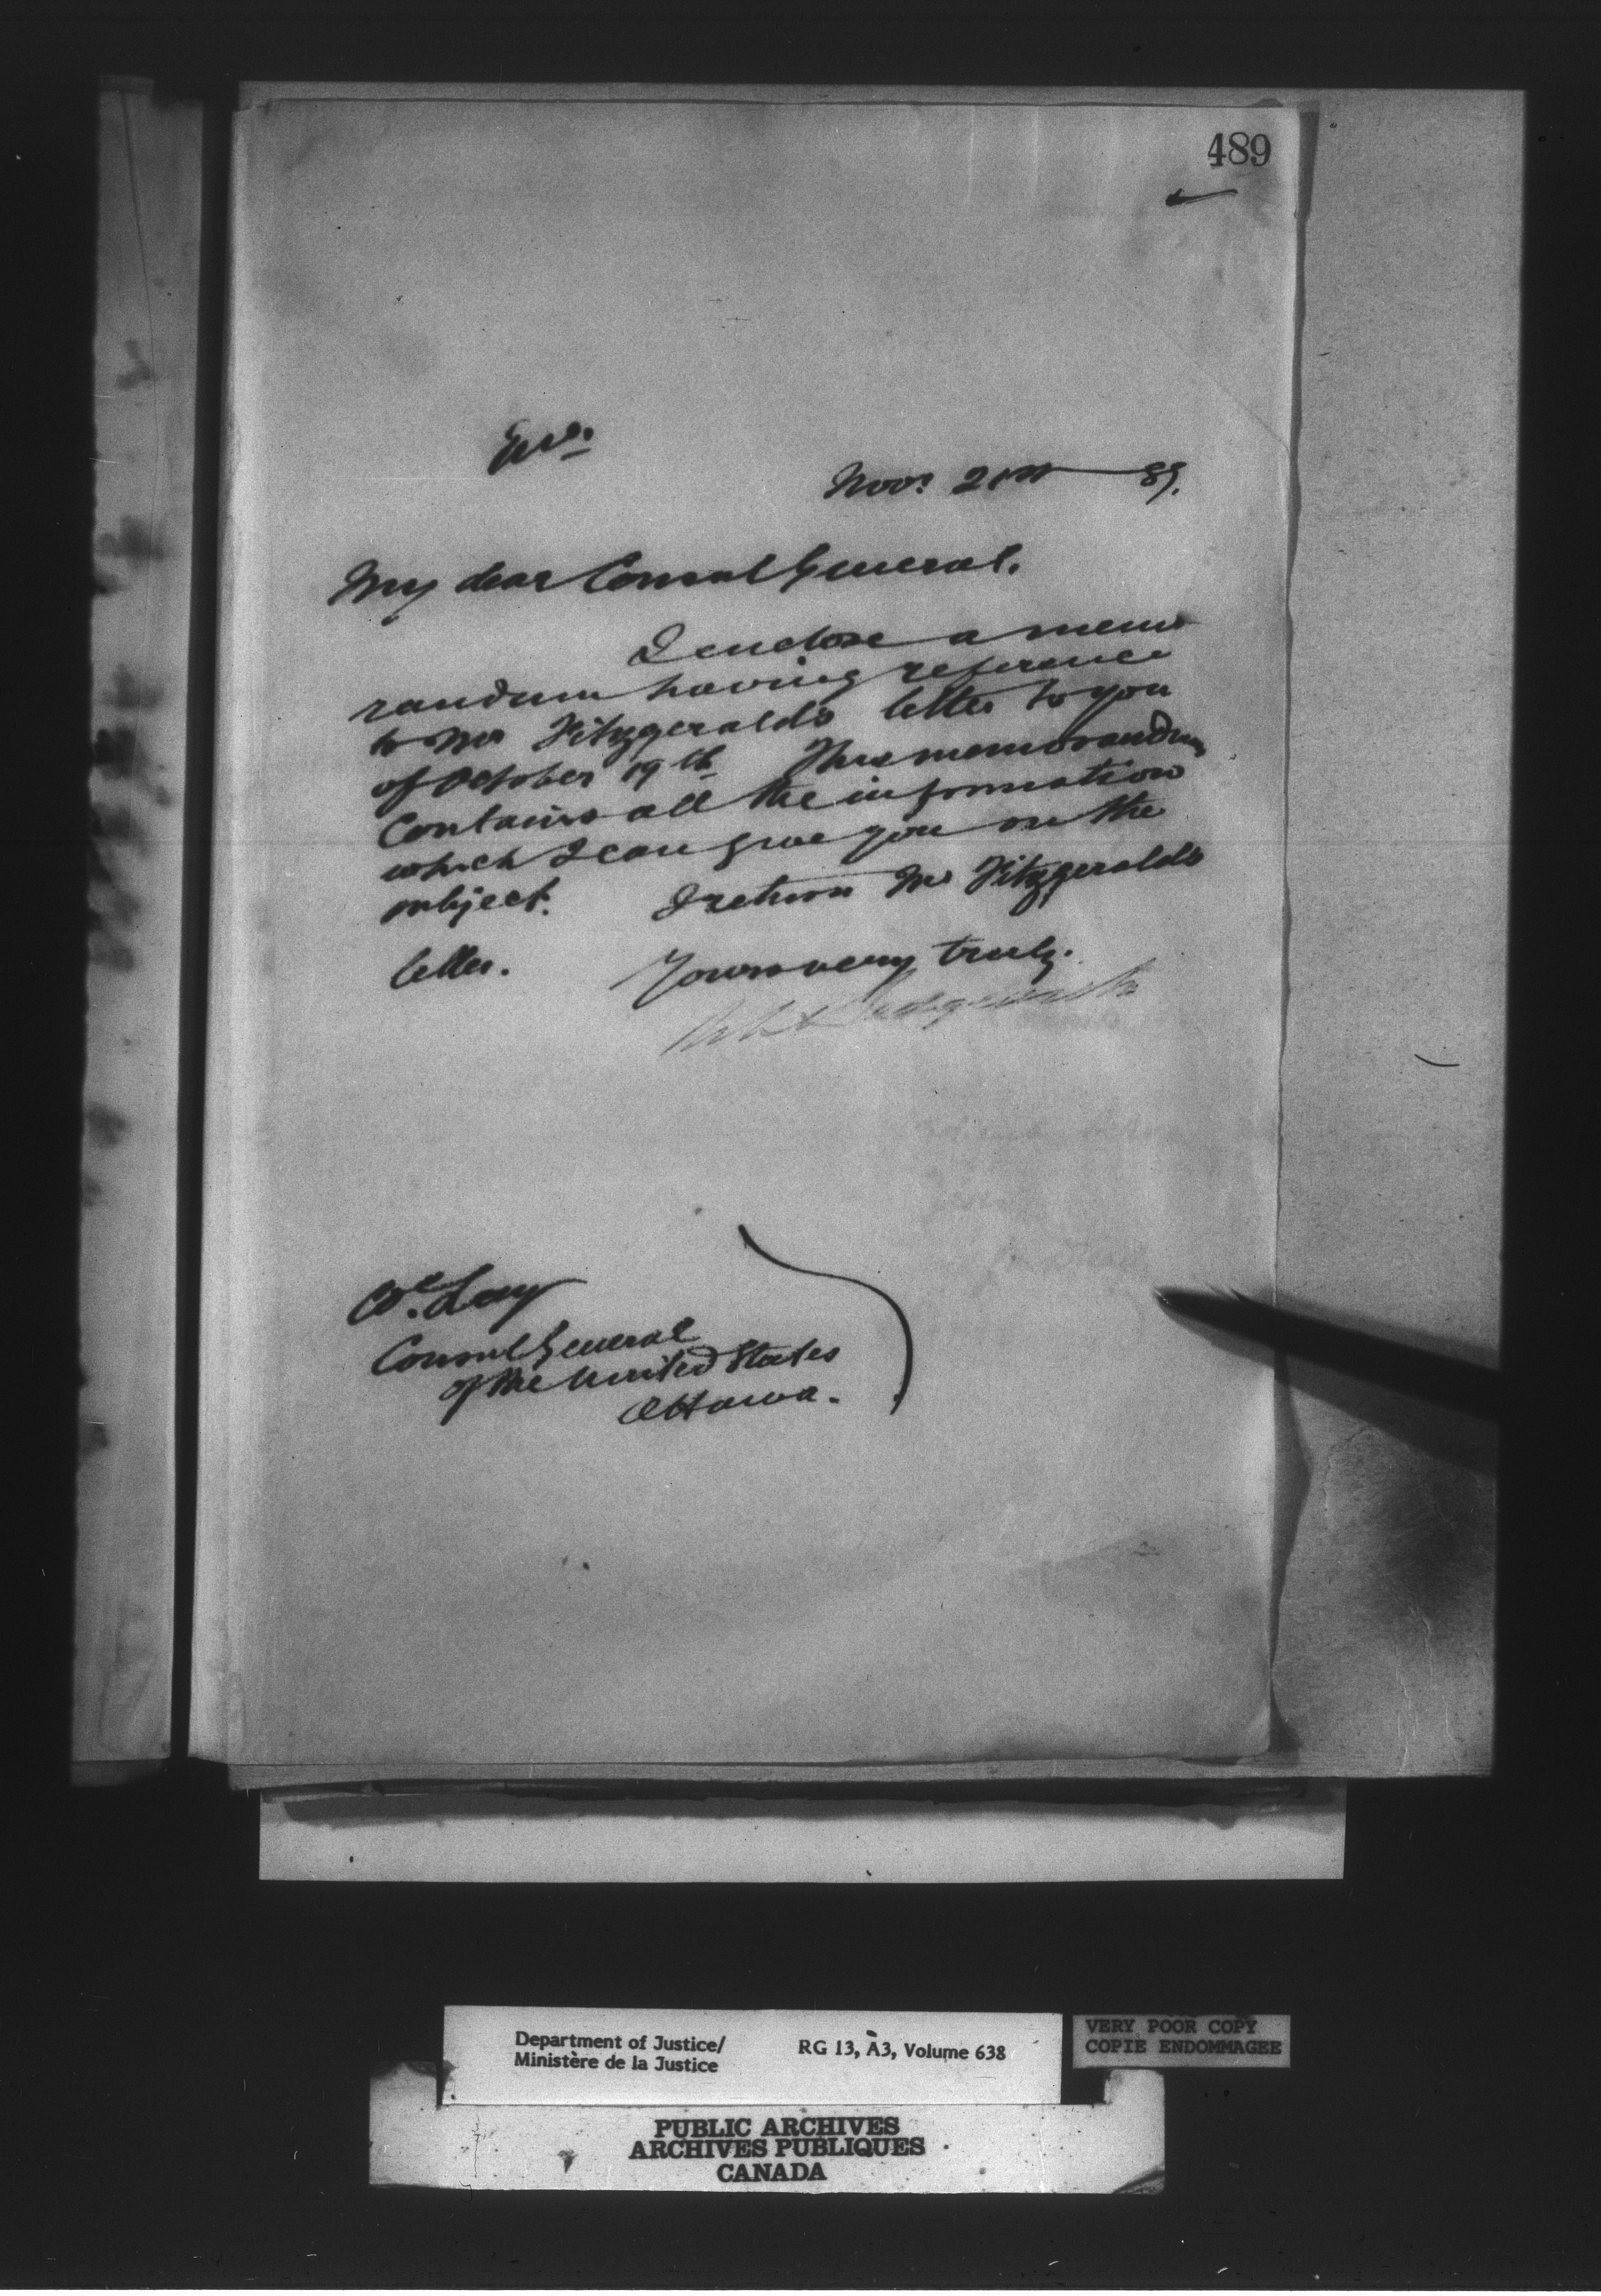 489
Nov: 21st 89.
My dear Consul General.
I enclose a memo
randum having reference
to Mr Fitzgeralds letter to you
of October 19th This memorandum
contains all the information
which I can give you on the
subject. I return Mr Fitzgeralds
letter. Yours very truly.
Sedgewick
Lay
Consul General
of the United States
Ottawa.
Department of Justice/ RG 13, A3, Volume 638
Ministère de la Justice
VERY POOR COPY
COPIE ENDOMMAGEE
PUBLIC ARCHIVES
ARCHIVES PUBLIQUES
CANADA